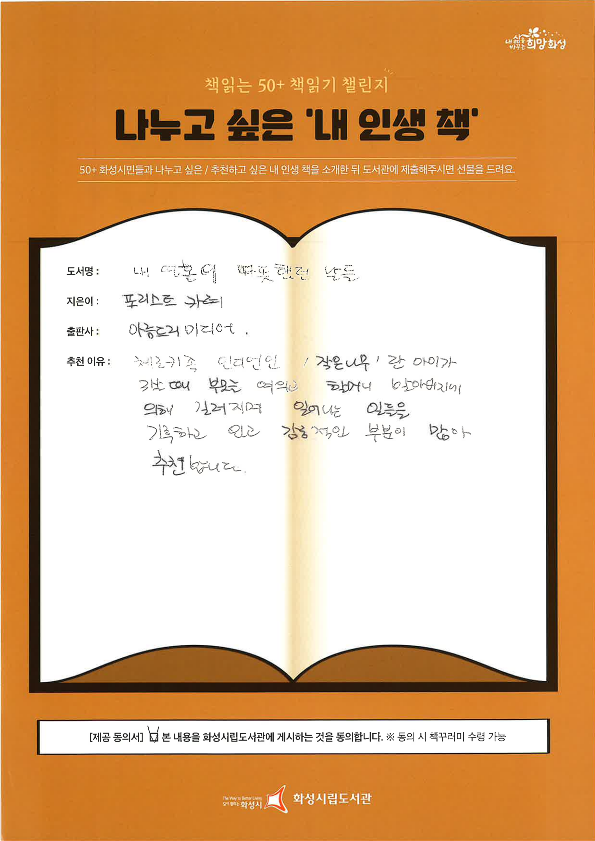 내 삶을 바꾸는 희망화성
책읽는 50+ 책읽기 챌린지
나누고 싶은 '내 인생 책'
50+ 화성시민들과 나누고 싶은 / 추천하고 싶은 내 인생 책을 소개한 뒤 도서관에 제출해주시면 선물을 드려요.
도서명 : 내 영혼이 따뜻했던 날들
지은이 : 포리스트 카터
출판사 : 아름드리미디어.
추천 이유 : 체로키족 인디언인 '작은나무'란 아이가
때 부모를 여의고 할머니 할아버지에
의해 길러지며 일어나는 일들을
기록하고 있고 감동적인 부분이 많아
추천합니다.
[제공 동의서] 본 내용을 화성시립도서관에 게시하는 것을 동의합니다. ※ 동의 시 책꾸러미 수령 가능
The Way to Better Living
화성시
화성시립도서관